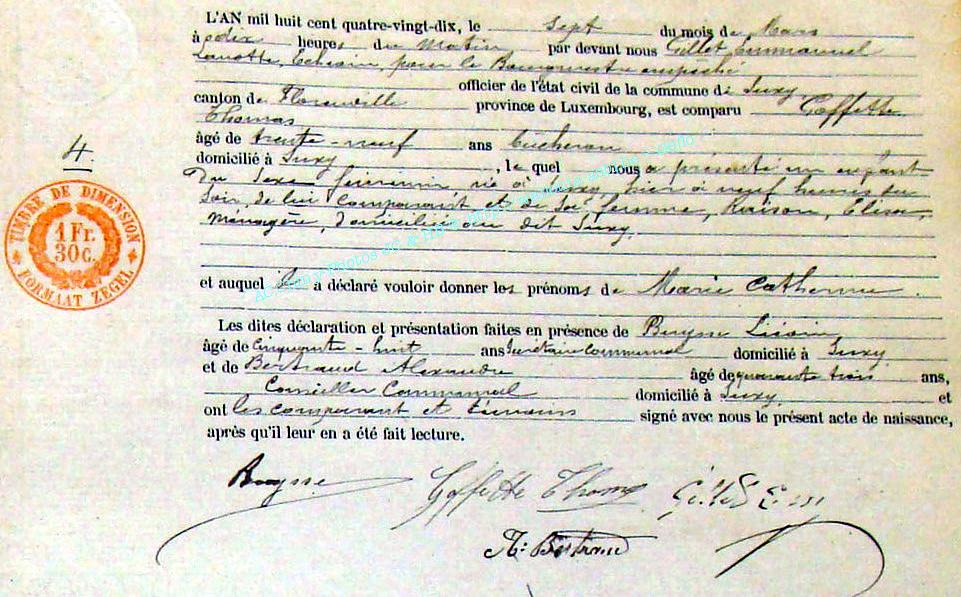 L'AN mil huit cent quatre-vingt-dix, le sept du mois de Mars
à dix heures du Matin par devant nous Gillet Emmanuel
Echevin, pour le Bourgmestre empêché
officier de l'état civil de la commune de Suxy
canton de Florenville province de Luxembourg, est comparu Goffette
Thomas
âgé de trente-neuf ans bucheron
domicilié à Suxy, le quel nous a présenté un enfant
Du Sexe féminin né à Suxy, hier à neuf heures du
Soir, de lui comparant et de Sa femme, Raison, Elisa,
Ménagère, domiciliée au dit Suxy.
et auquel il a déclaré vouloir donner les prénoms de Marie Catherine.
Les dites déclaration et présentation faites en présence de Buysse
âgé de Cinquante-huit ans Secrétaire Communal domicilié à Suxy
et de Bertrand Alexandre âgé de quarante trois ans,
Conseiller Communal domicilié à Suxy et
ont les comparant et témoins signé avec nous le présent acte de naissance,
après qu'il leur en a été fait lecture.
4.
TIMBRE DE DIMENSION
1 Fr.
30 c.
FORMAAT ZEGEL
Buysse Goffette Thomas
A. Bertrand